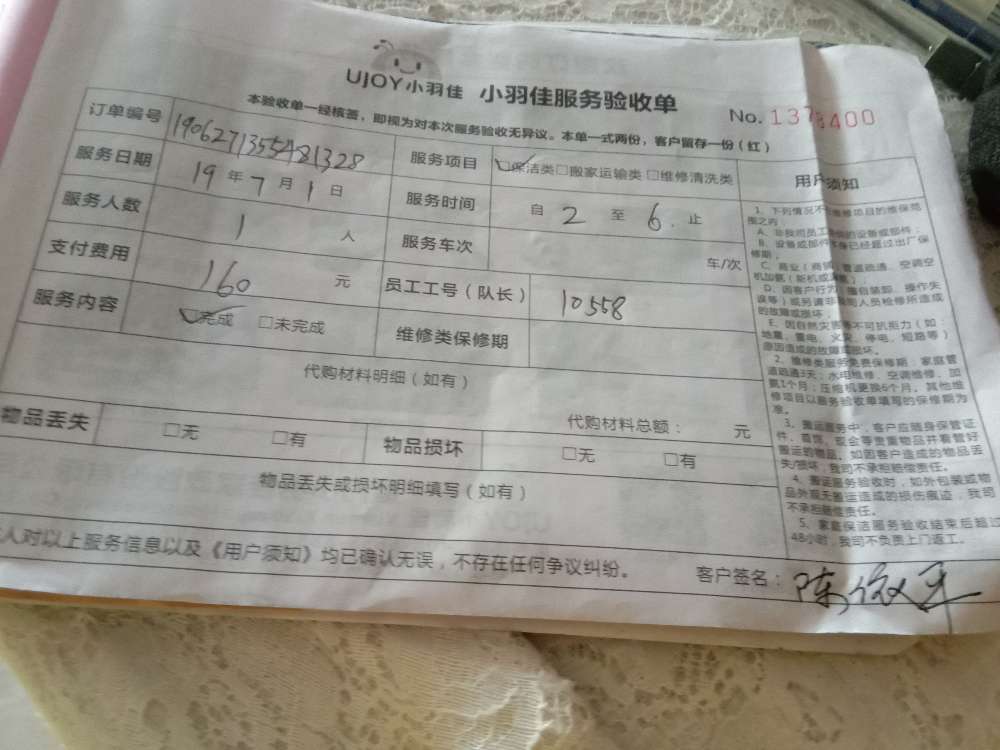 UJOY小羽佳 小羽佳服务验收单
本验收单一经核签，即视为对本次服务验收无异议。本单一式两份，客户留存一份（红）
No. 1378400
订单编号 190627135548 1328 服务项目 ☑保洁类□搬家运输类□维修清洗类 用户须知
服务日期 19年7月1日 服务时间 自2至6.止
服务人数 1人 服务车次 车/次
支付费用 160元 员工工号（队长） 10558
服务内容 ☑完成 □未完成 维修类保修期
代购材料明细（如有）
代购材料总额： 元
物品丢失 □无 □有 物品损坏 □无 □有
物品丢失或损坏明细填写（如有）
人对以上服务信息以及《用户须知》均已确认无误，不存在任何争议纠纷。
客户签名：陈
1、下列情况不 维修项目的维保范
围之内
A、非我司员工 的设备或部件；
B、设备或部件 已经超过出厂保
修期；
C、商业（商 管道疏通、空调空
机加氨（新机或 ；
D、因客户行为 擅自装卸、操作失
误等）或另请非 司人员检修所造成
的故障或损坏；
E、因自然灾害等不可抗拒力（如：
地震、雷电、火灾、停电、短路等）
原因造成的故障或损坏。
2、维修类服务免费保修期：家庭管
道疏通3天；水电维修、空调维修、加
氨1个月；压缩机更换6个月。其他维
修项目以服务验收单填写的保修期为
准。
3、搬运服务中，客户应随身保管证
件、首饰、现金等贵重物品并看管好
搬运的物品。如因客户造成的物品丢
失/损坏，我司不承担赔偿责任。
4、搬运服务验收时，如外包装或物
品外观无搬运造成的损伤痕迹，我司
不承担赔偿责任。
5、家庭保洁服务验收结束后超过
48小时，我司不负责上门返工。